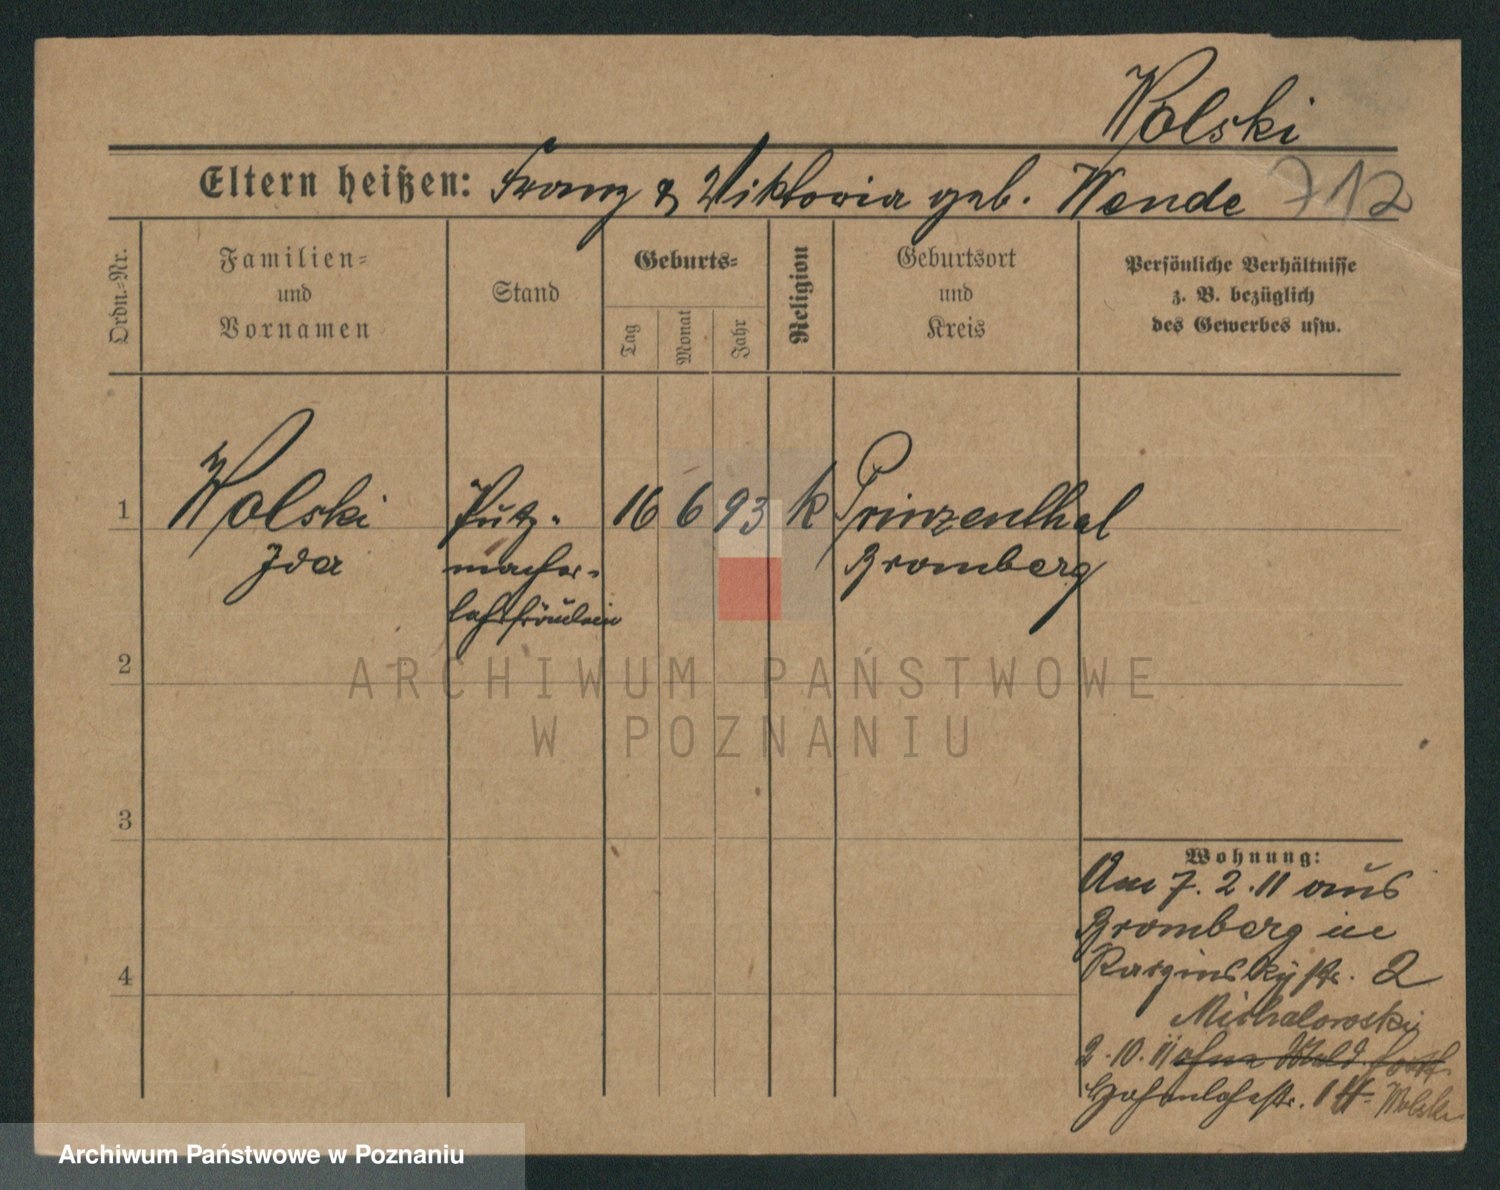 Wolski
Eltern heißen: Franz & Viktoria geb. Wende 712
Ordn.-Nr.
Familien-
und
Vornamen
Stand
Geburts-
Tag
Monat
Jahr
Religion
Geburtsort
und
Kreis
Persönliche Verhältnisse
z. B. bezüglich
des Gewerbes usw.
1 Wolski Putz- 16 6 93 k Prinzenthal
Ida macher- Bromberg
lehrfräulein
2
ARCHIWUM PAŃSTWOWE
W POZNANIU
3
Wohnung:
Am 7. 2. 11 aus
Bromberg in
4
2
Michalowski
2. 10. 11 ohne Meld. fort
Hohenlohestr. 14 Wolski
Archiwum Państwowe w Poznaniu